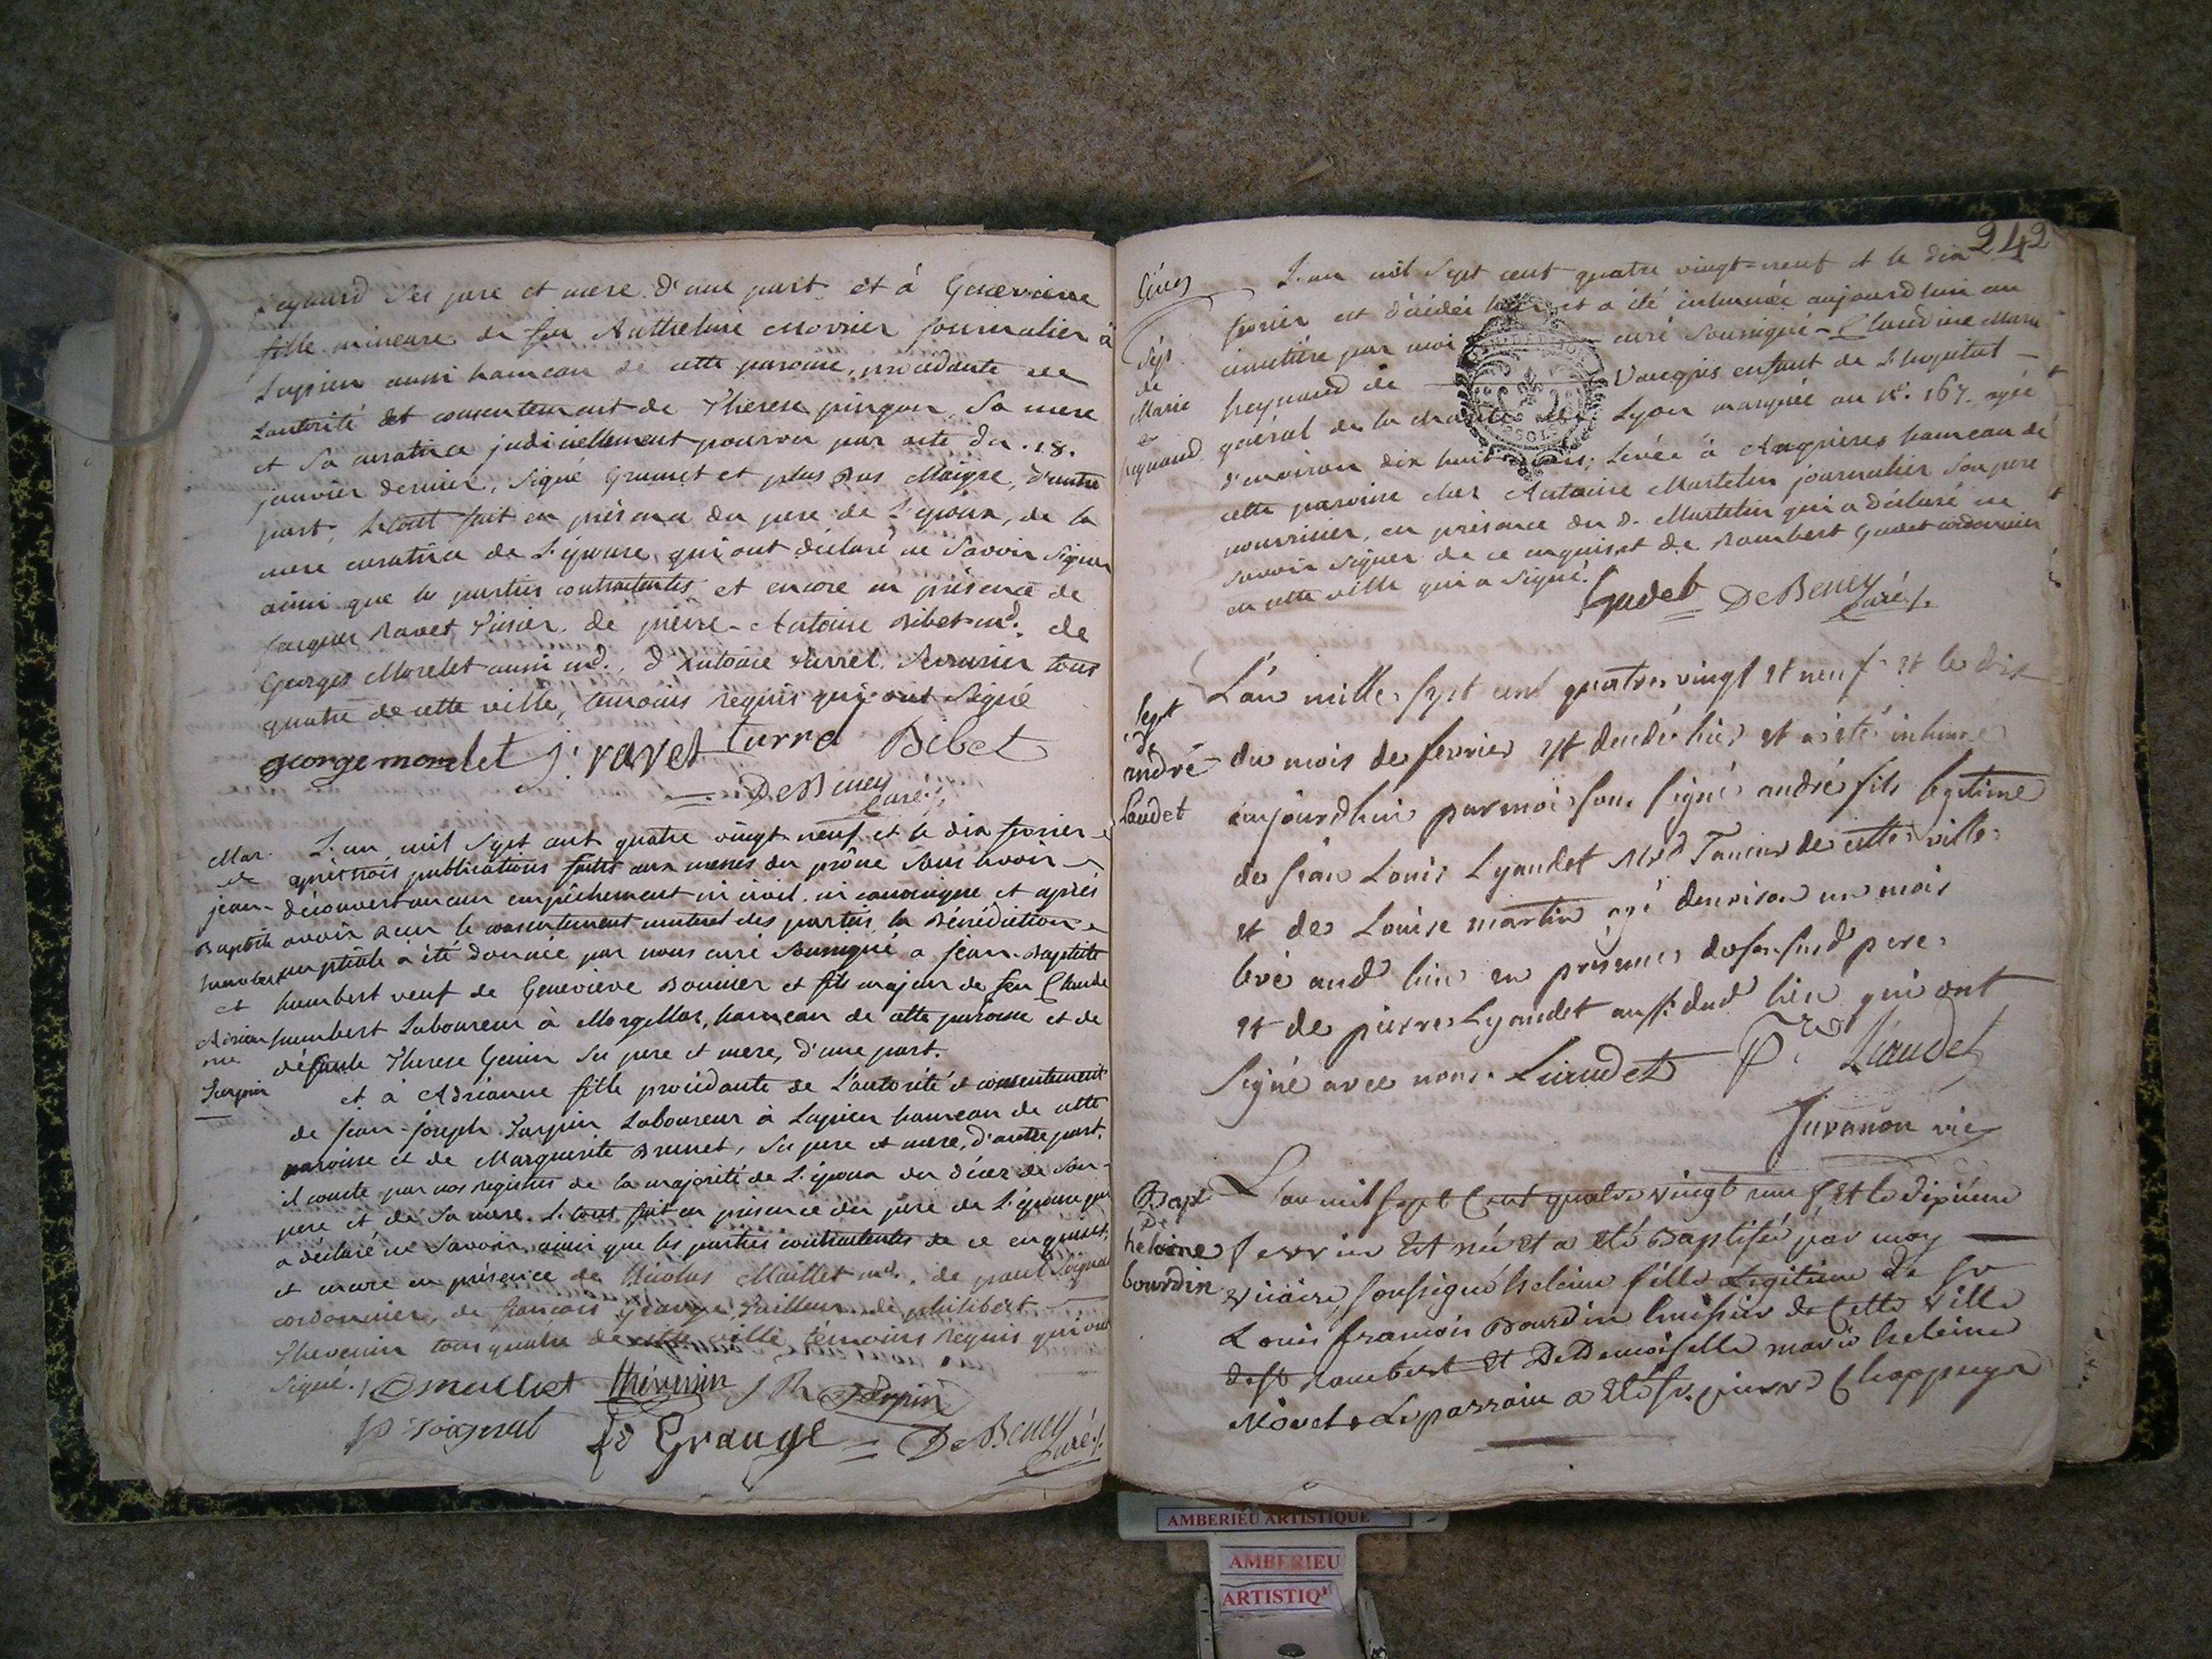 reynard ses pere et mere d'une part et à Genevieve
fille mineure de feu Anthelme Morrier journalier à
Lupieu aussi hameau de cette paroisse, procédante de
L'autorité et consentement de Therese pingon, Sa mere
et Sa curatrice judiciellement pourvu par acte du 18.
janvier dernier, signé Grumet et plus Bas Maigre, d'autre
part, Le tout fait en présence du pere de L'époux, de la
mere curatrice de L'épouse, qui ont déclaré ne Savoir Signer
ainsi que les parties contractantes, et encore en présence de
Jacques Ravet, de pierre-Antoine Bibet md. de
Georges Morelet aussi md., d'Antoine Serrurier tous
quatre de cette ville, temoins requis qui ont Signé
george morelet J. ravet Bibet
DeBeney
Curé
Mar.
de
jean-
Baptiste
humbert
et
Adrien
ne
L'an mil Sept cent quatre vingt-neuf et le dix fevrier
après trois publications faites aux messes du prône Sans avoir
découvert aucun empêchement ni civil, ni canonique et après
avoir reçu le consentement mutuel des parties, la Bénédiction
nuptiale a été donnée par nous curé Soussigné a Jean-Baptiste
humbert veuf de Geneviève Bonnier et fils majeur de feu Claude
humbert Laboureur à MorgeMas, hameau de cette paroisse et de
défunte Therese Genin Ses pere et mere, d'une part.
et à Adrianne fille procédante de L'autorité et consentement
de Jean-Joseph Laboureur à Lupieu hameau de cette
paroisse et de Marguerite Brunet, Ses pere et mere, d'autre part.
il conste par nos registres de la majorité de L'époux du décès de Son
pere et de Sa mere. Le tout fait en présence du pere de L'épouse qui
a déclaré ne Savoir, ainsi que les parties contractantes de ce enquises,
et encore en présence de Nicolas Maillet md., de paul
cordonnier, de françois Grange, Tailleur de philibert
Thevenin tous quatre de cette ville, témoins requis qui ont
Signé.
Thévenin
Grange DeBeney
Curé
242
Sép.
de
Marie
reynaud
L'an mil Sept cent quatre vingt-neuf et le dix
fevrier est décédée hier et a été inhumée aujourd'hui au
cimetière par moi curé Soussigné Claudine Marie
reynaud de enfant de L'hopital
général de la charité de Lyon marquée au N°. 167. agée
d'environ dix huit levée à Angrières hameau de
cette paroisse chez Antoine Martelin journalier Son pere
nourricier, en présence du d. Martelin qui a déclaré ne
Savoir signer de ce enquis, et de Rambert Gudet cordonnier
en cette ville qui a Signé.
Gudet DeBeney
Curé
Sept
de
André
Liaudet
L'an mille sept cent quatre vingt et neuf et le dix
du mois de fevrier est décédé hier et a été inhumé
aujourdhui par moi sous signé andré fils légitime
de Jean Louis Lyaudet Mrd Taneur de cette ville
et de Louise martin agé denviron un mois
levé aud lieu en presence de son susd pere
et de pierre Lyaudet aussi dud lieu qui ont
signé avec nous. Liaudet Liaudet
Juvanon vic
Bapt
de
heleine
bourdin
L'an mil sept Cent quatre vingt neuf, Et le dixiéme
fevrier Est née Et a Eté Baptisée par moy
vicaire soussigné heleine fille Legitime de sr
Louis françois Bourdin huissier de Cette ville
de st Rambert Et De Demoiselle marie heleine
Movet. Le parrain a Eté sr. pierre Chappuys
AMBERIEU ARTISTIQUE
AMBERIEU
ARTISTIQ